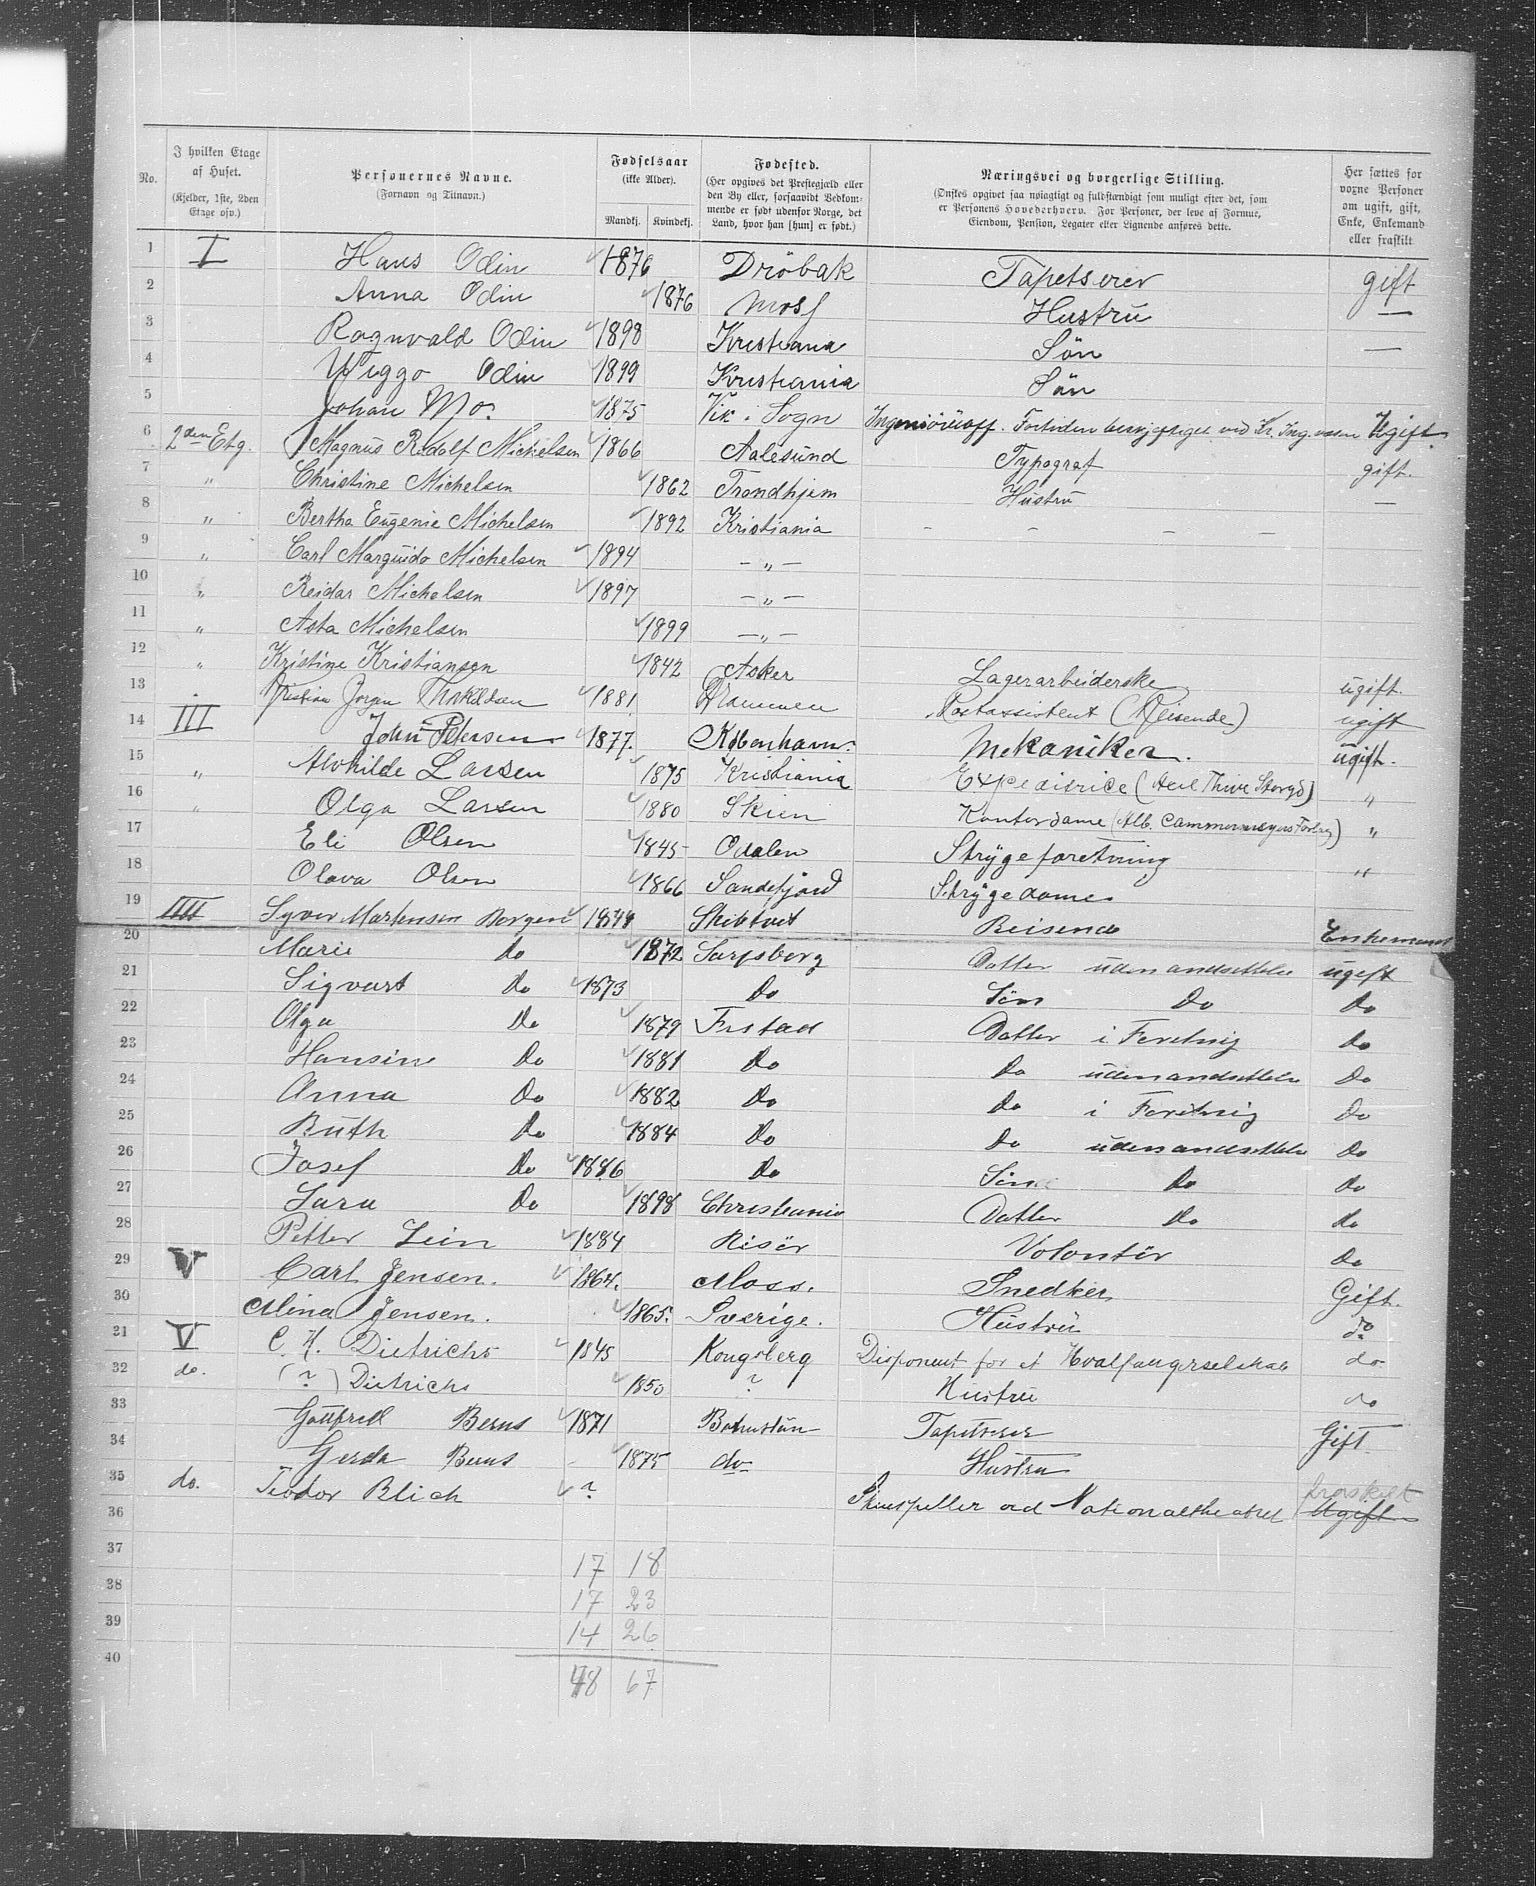 No.
I hvilken Etage af Huset.
(Kjelder, 1ste, 2den Etage osv.)
Personernes Navne.
(Fornavn og Tilnavn.)
Fødselsaar
(ikke Alder).
Mandkj. Kvindekj.
Fødested.
(Her opgives det Præstegjæld eller den By eller, forsaavidt Vedkommende er født udenfor Norge, det Land, hvor han [hun] er født.)
Næringsvei og borgerlige Stilling.
(Ønskes opgivet saa nøiagtigt og fuldstændigt som muligt efter det, som er Personens Hovederhverv. For Personer, der leve af Formue, Eiendom, Pension, Legater eller Lignende anføres dette.
Her sættes for voxne Personer om ugift, gift, Enke, Enkemand eller fraskilt
1 I Hans Odin 1876 Dröbak Tapetserer gift
2 Anna Odin 1876 Moss Hustru —
3 Ragnvald Odin 1898 Kristiania Sön —
4 Wiggo Odin 1899 Kristiania Sön
5 Johan Mo. 1875 Vik i Sogn Ugift
6 2den Etg. Magnus Rudolf Michelsen 1866 Aalesund Typograf gift.
7 " Christine Michelsen 1862 Trondhjem Hustru —
8 " Bertha Eugenie Michelsen 1892 Kristiania - - - -
9 " Carl Marguido Michelsen 1894 — " —
10 " Reidar Michelsen 1897 — " —
11 " Asta Michelsen 1899 — " —
12 " Kristine Kristiansen 1842 Asker Lagerarbeiderske ugift.
13 " Kristian Jørgen Thorkildsen 1881 Drammen Postassistent (Reisende) ugift
14 III John Petersen 1877. København. Mekaniker. ugift.
15 " Alvhilde Larsen 1875 Kristiania Expeditrice "
16 " Olga Larsen 1880 Skien Kontordame (Alb. Cammermeyers Forlag) "
17 Eli Olsen 1845 Odalen Strygeforetning "
18 Olava Olsen 1866 Sandefjord Strygedame
19 IIII Syver Martensen Borgen 1848 Skibtvet Reisende Enkemand
20 Marie do 1872 Sarpsborg Datter udenandsættelse ugift
21 Sigvart do 1873 Do Sön Do Do
22 Olga do 1879 Frstad Datter i Foretnig do
23 Hansine Do 1881 Do Do udenandsættelse Do
24 Anna Do 1882 Do Do i Foretnig Do
25 Ruth do 1884 Do Do udenandsættelse Do
26 Josef do 1886 do Sön Do do
27 Sara Do 1898 Christiania Datter Do do
28 Petter Lein 1884 Risör Volontör do
29 V Carl Jensen. 1864. Moss. Snedker Gift.
30 Mina Jensen. 1865. Sverige. Hustru do
31 V C. H. Dietrichs 1845 Kongsberg Disponent for et Hvalfangerselskab do
32 do. (?) Dietrichs 1850 ? Hustru do
33 Gottfred Berns 1871 Bohuslän Tapetserer Gift
34 Gerda Berns 1875 do Hustru
35 do. Teodor Blich ? Skuespiller ved Nationaltheatret fraskilt Ugift
36
37 17 18
38 17 23
39 14 26
40
48 67